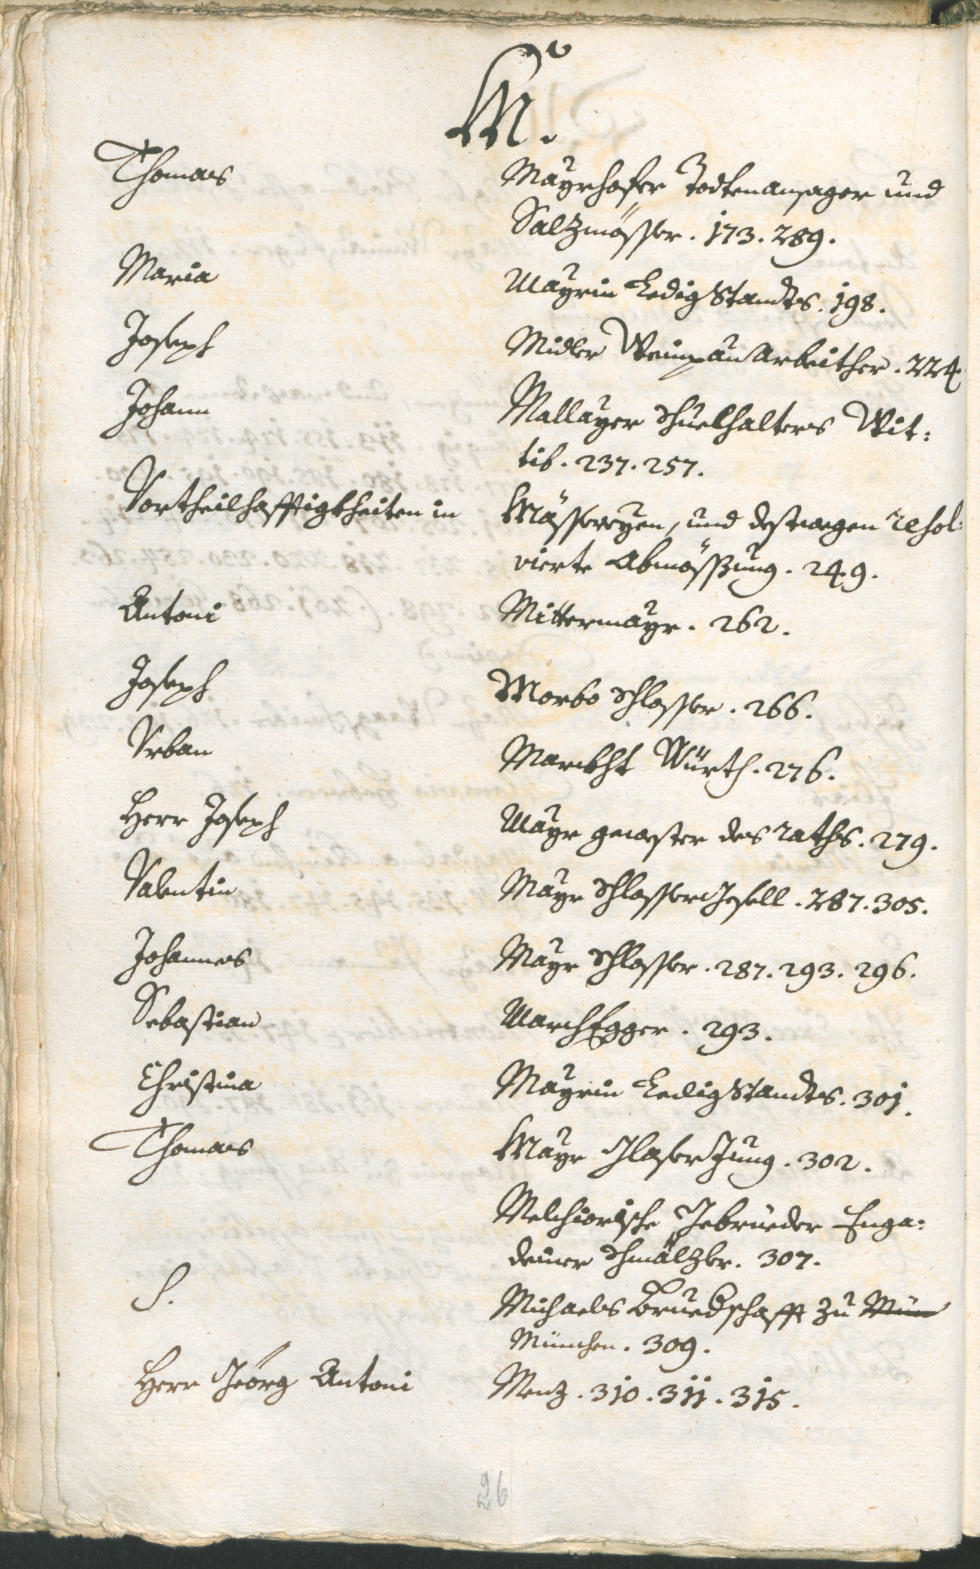 M.
Thomas Mayrhofer Todtenansager und
Saltzmösser. 173. 289.
Maria Mayrin Ledig Standts. 198.
Joseph Midler Weinpau Arbeither. 224
Johann Mallayer Schuelhalters Wit:
tib. 237. 257.
Vortheilhafftigkheiten in Mössereyen, und destwegen resol:
vierte Abmössung. 249.
Antoni Mittermayr. 262.
Joseph Morbo Schlosser. 266.
Vrban Marckht Würth. 276.
Herr Joseph Mayr gewester des raths. 279.
Valentin Mayr Schlosser Gesell. 287. 305.
Johannes Mayr Schlosser. 287. 293. 296.
Sebastian MarchEgger. 293.
Christina Mayrin Ledig Standts. 301.
Thomas Mayr Glaser Jung. 302.
Melchiorische Gebrüeder Enga:
deiner Schmältzler. 307.
S. Michaels Bruedschafft zu Mün
München. 309.
Herr Georg Antoni Menz. 310. 311. 315.
26